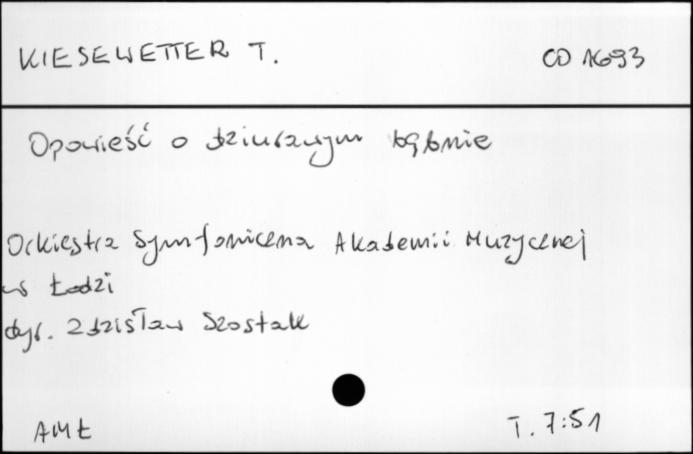 KIESEWETTER T.
CD 1693
Opowieść o dziurawym bębnie
Orkiestra Symfoniczna Akademii Muzycznej
w Łodzi
dyr. Zdzisław Szostak
AMŁ
T. 7:51